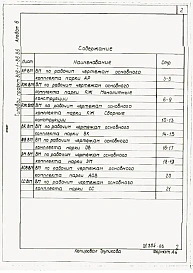 2
Содержание
Лист
Наименование
Стр
ВМ по рабочим чертежам основного
комплекта марки АР
3-5
ВМ по рабочим чертежам основного
комплекта марки КЖ Монолитные
конструкции
6-9
ВМ по рабочим чертежам основного
комплекта марки КЖ Сборные
конструкции
10-13
ВМ по рабочим чертежам основного
комплекта марки ВК
14-15
ВМ по рабочим чертежам основного
комплекта марки ОВ
16-17
ВМ по рабочим чертежам основного
комплекта марки ЭМ
18-19
ВМ по рабочим чертежам основного
комплекта марки
20
ВМ по рабочим чертежам основного
комплекта марки СС
21
Копировал
Формат А4
Альбом 6